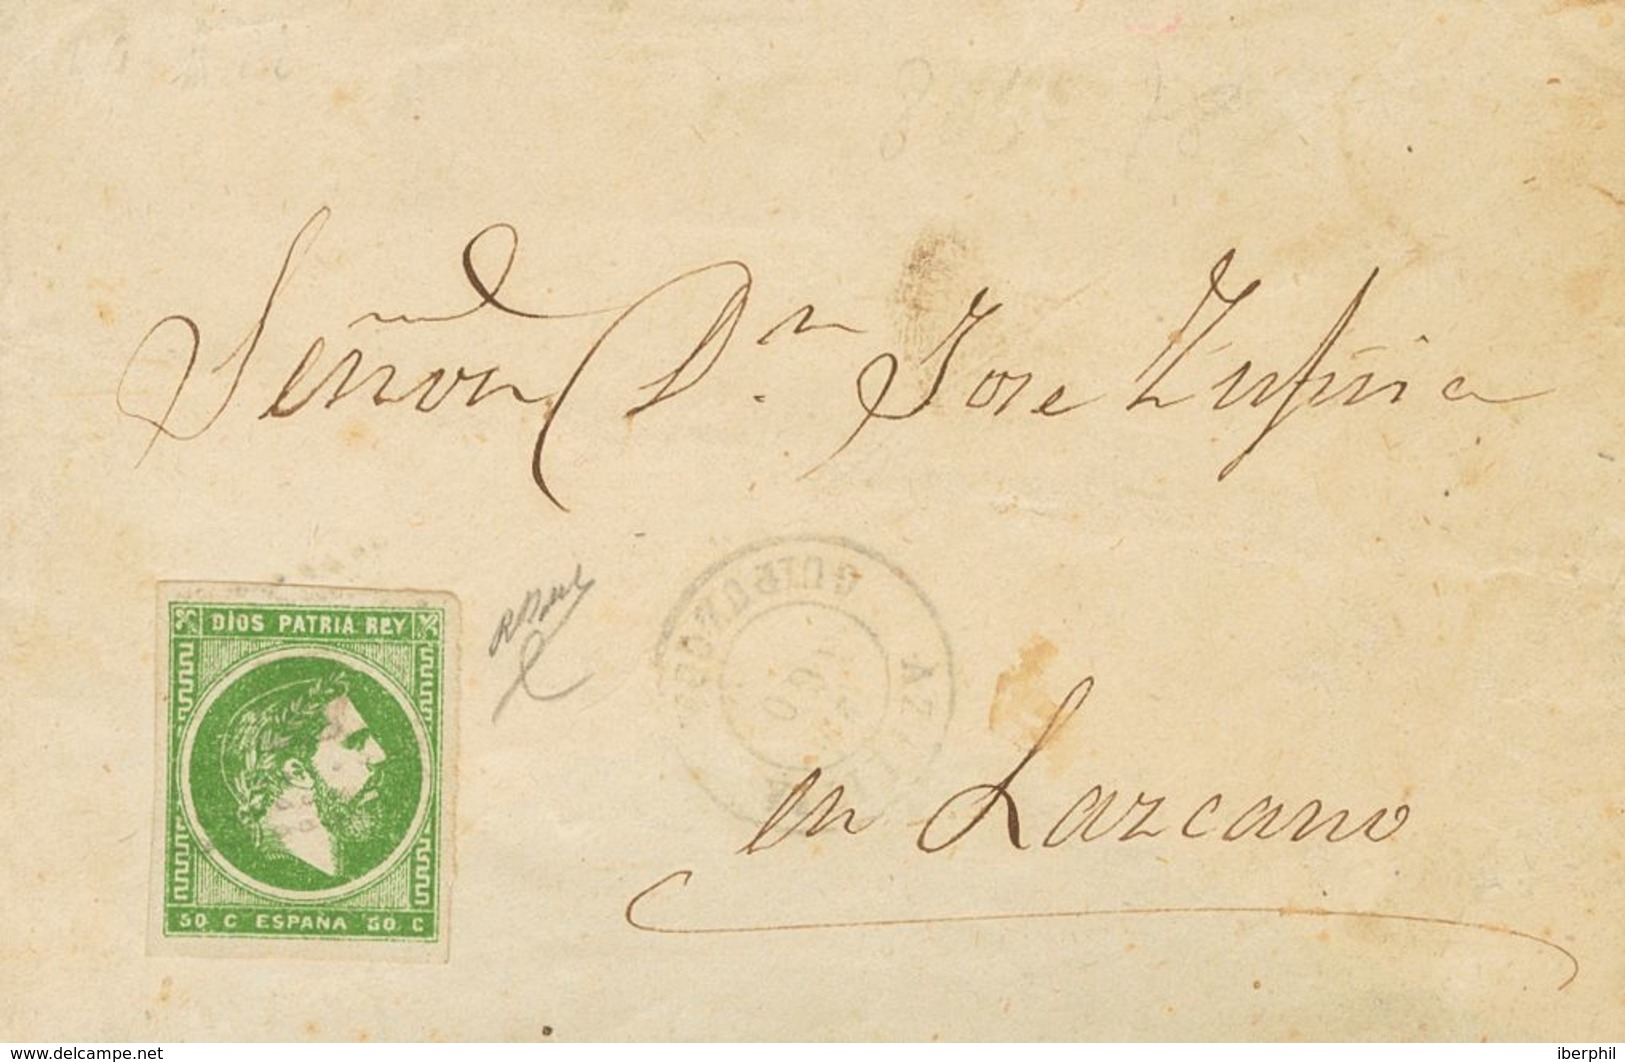 Señor Dn. Jose Zufiria
DÍOS PATRIA REY
50 C ESPAÑA 50 C
GUIPUZCOA
en Lazcano
www.delcampe.net
iberphil